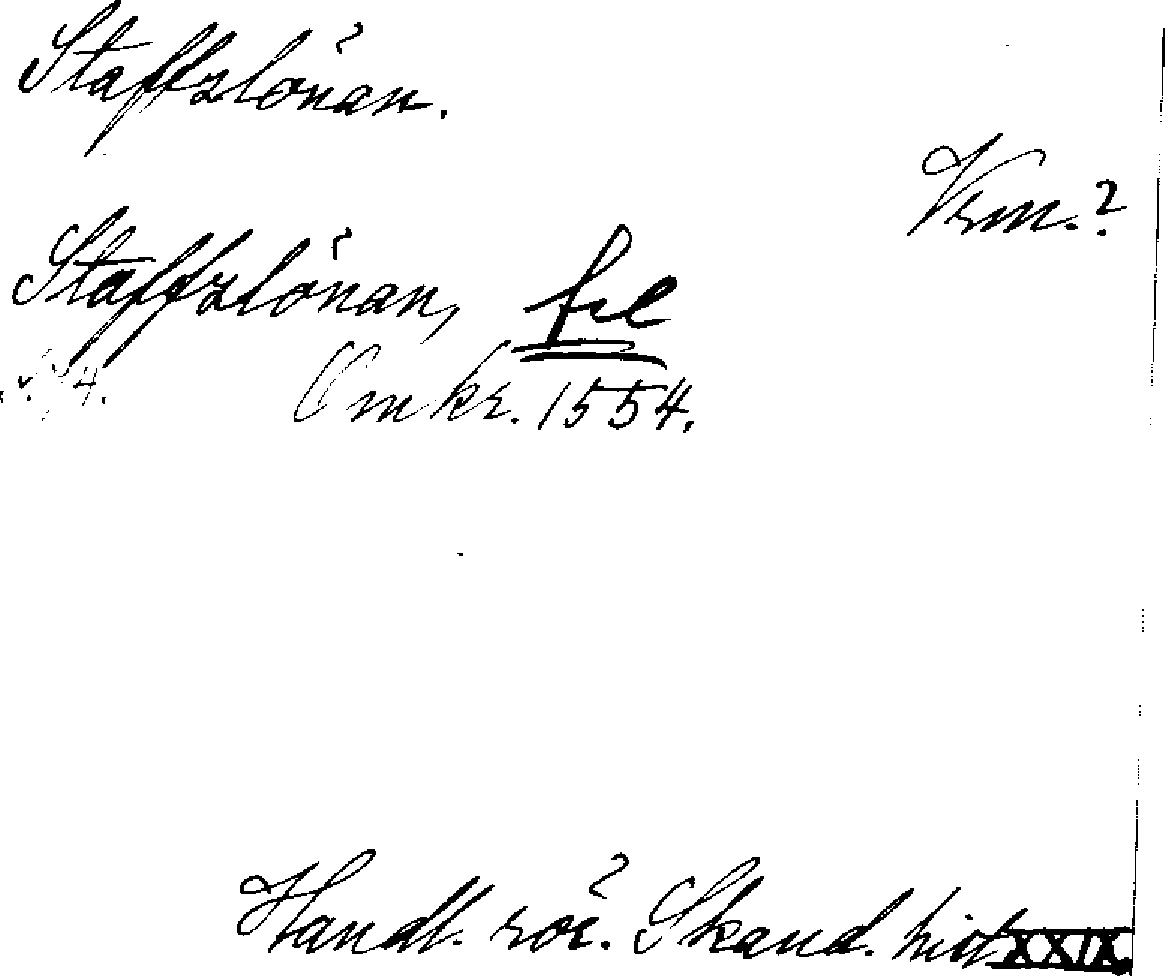 Staffzlönan.
Vrm.?
Staffzlönan, fil
Omkr. 1554.
Handl. rör. Skand. hist. XXIX